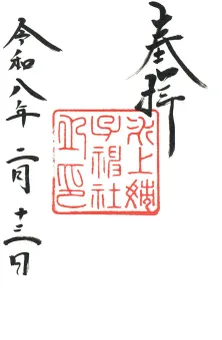 奉拝
氷上姉
子神社
之印
令和八年二月十三日